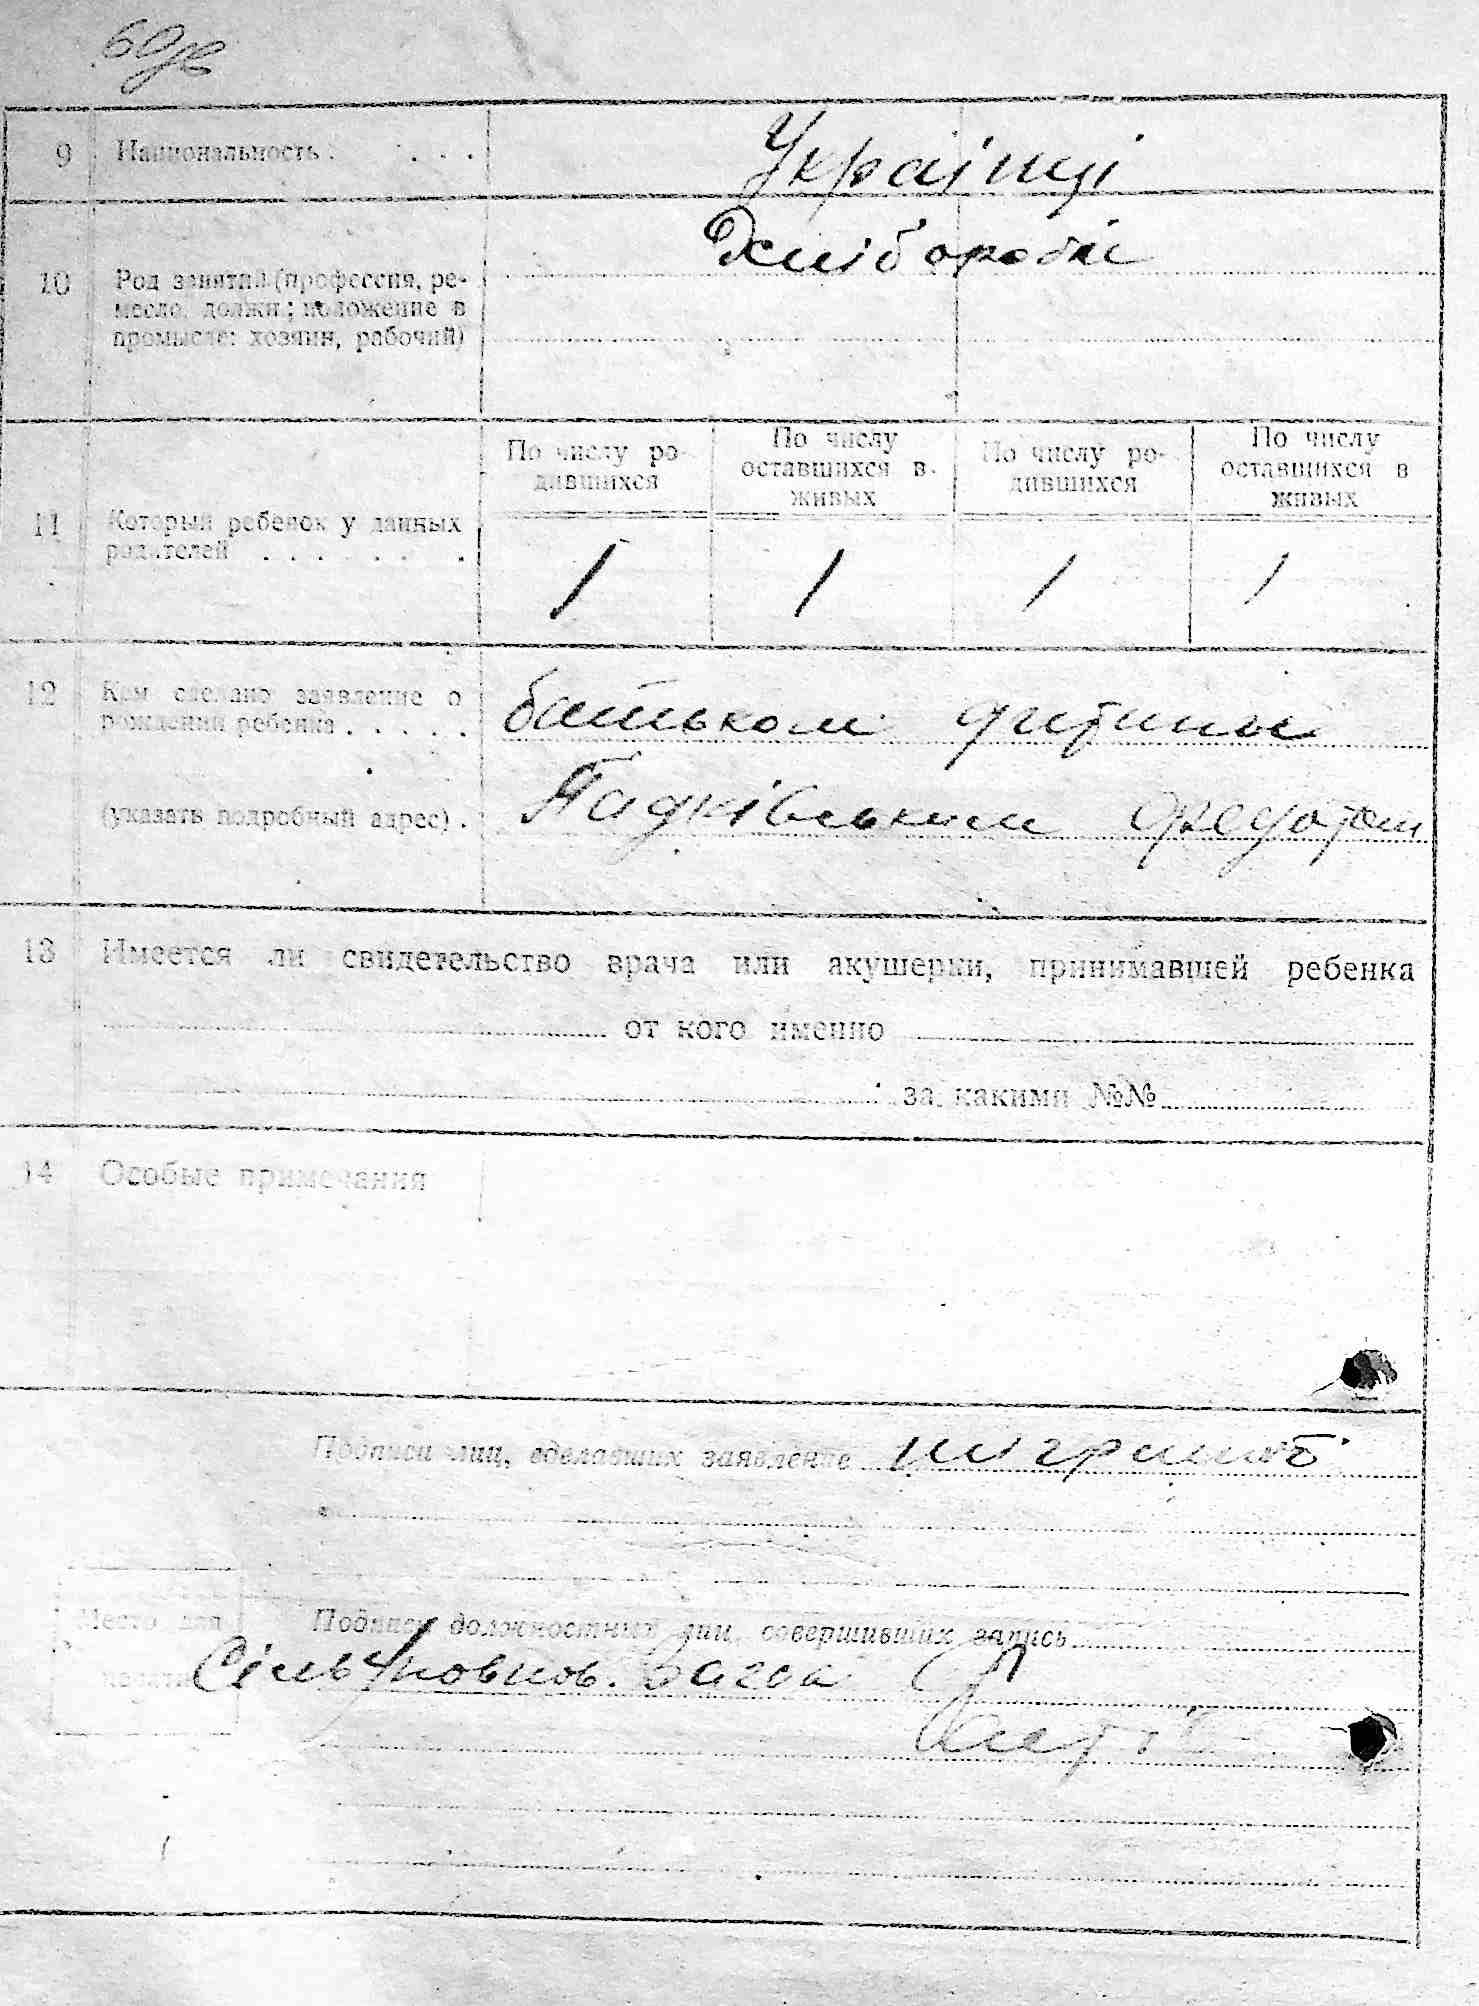 60зв
9 Национальность . . . . Українці
Хлібороби
10 Род занятий (профессия, ре-
месло, должн.; положение в
промысле: хозяин, рабочий)
По числу ро- По числу По числу ро- По числу
дившихся оставшихся в дившихся оставшихся в
живых живых
11 Который ребенок у данных
родителей . . . . . . .
1 1 1 1
12 Кем сделано заявление о
рождении ребенка . . . . . батьком дитини
(указать подробный адрес) . Падківським Федотом
13 Имеется ли свидетельство врача или акушерки, принимавшей ребенка
от кого именно
за какими №№
14 Особые примечания
Подписи лиц, сделавших заявление неграмот
Место для Подписи должностных лиц, совершивших запись
печати Сільуповнов. Загса